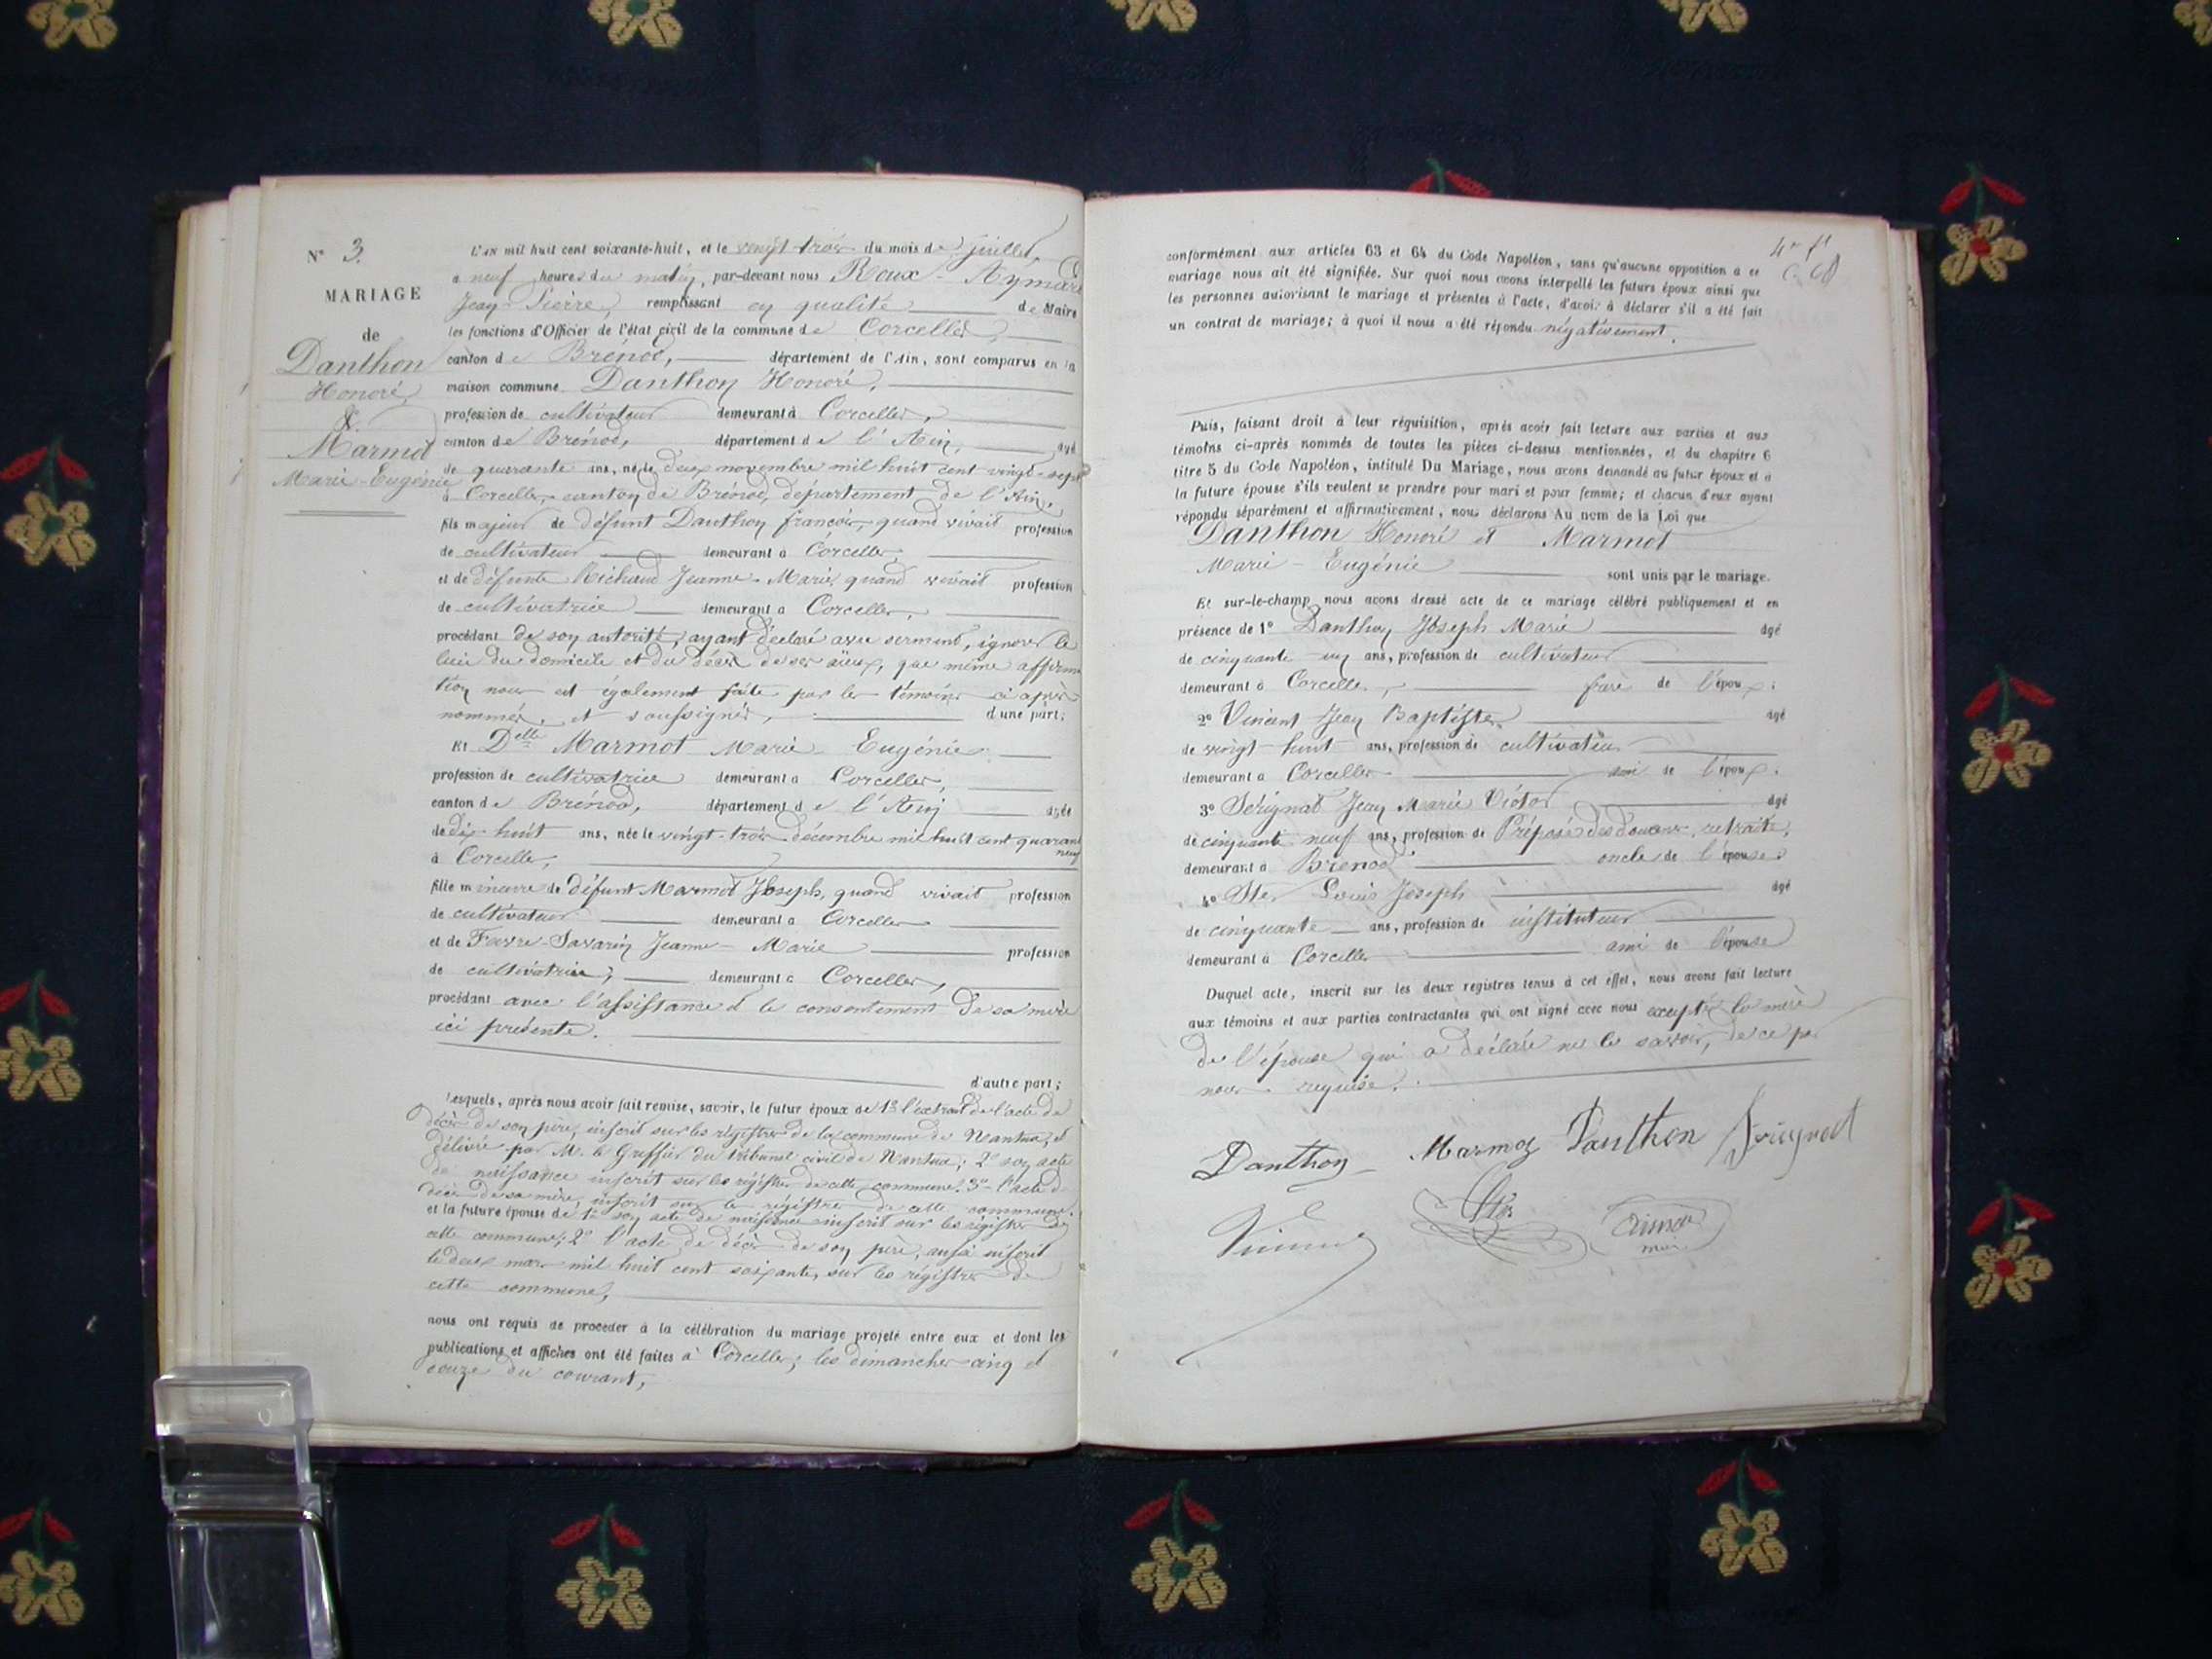 N° 3.
MARIAGE
de
Danthon
Honoré,
&
Marmot
Marie-Eugénie
L'an mil huit cent soixante-huit, et le vingt-trois du mois de juillet,
à neuf heures du matin, par-devant nous Roux-Aymard
Jean-Pierre, remplissant en qualité de Maire
les fonctions d'Officier de l'état civil de la commune de Corcelles,
canton de Brénod, département de l'Ain, sont comparus en la
maison commune Danthon Honoré,
profession de cultivateur demeurant à Corcelles,
canton de Brénod, département de l'Ain, âgé
de quarante ans, né le deux novembre mil huit cent vingt-sept
à Corcelles, canton de Brénod, département de l'Ain,
fils majeur de défunt Danthon françois, quand vivait profession
de cultivateur demeurant à Corcelles,
et de défunte Richard Jeanne-Marie, quand vivait profession
de cultivatrice demeurant à Corcelles,
procédant de son autorité, ayant déclaré avec serment, ignorer le
lieu du domicile et du décès de ses aïeux, que même affirma
tion nous est également faite par les témoins ci-après
nommés, et soussignés, d'une part;
Et Delle Marmot Marie Eugénie
profession de cultivatrice demeurant à Corcelles,
canton de Brénod, département de l'Ain âgée
de dix-huit ans, née le vingt-trois décembre mil huit cent quarante
neuf
à Corcelles,
fille mineure de défunt Marmot Joseph, quand vivait profession
de cultivateur demeurant à Corcelles
et de Favre-Savarin Jeanne-Marie profession
de cultivatrice, demeurant à Corcelles,
procédant avec l'assistance et le consentement de sa mère
ici présente.
d'autre part;
Lesquels, après nous avoir fait remise, savoir, le futur époux de 1° l'extrait de l'acte de
décès de son père, inscrit sur les régistres de la commune de Nantua, et
délivré par M. le Greffier du tribunal civil de Nantua; 2° son acte
de naissance inscrit sur les régistres de cette commune. 3° l'acte de
décès de sa mère, inscrit sur le régistre de cette commune.
et la future épouse de 1° son acte de naissance inscrit sur les régistres de
cette commune; 2° l'acte de décès de son père, aussi inscrit
le deux mars mil huit cent soixante, sur les régistres de
cette commune,
nous ont requis de procéder à la célébration du mariage projeté entre eux et dont les
publications et affiches ont été faites à Corcelles; les dimanches cinq et
douze du courant,
conformément aux articles 63 et 64 du Code Napoléon, sans qu'aucune opposition à ce
mariage nous ait été signifiée. Sur quoi nous avons interpellé les futurs époux ainsi que
les personnes autorisant le mariage et présentes à l'acte, d'avoir à déclarer s'il a été fait
un contrat de mariage; à quoi il nous a été répondu négativement.
Puis, faisant droit à leur réquisition, après avoir fait lecture aux parties et aux
témoins ci-après nommés de toutes les pièces ci-dessus mentionnées, et du chapitre 6
titre 5 du Code Napoléon, intitulé Du Mariage, nous avons demandé au futur époux et à
la future épouse s'ils veulent se prendre pour mari et pour femme; et chacun d'eux ayant
répondu séparément et affirmativement, nous déclarons Au nom de la Loi que
Danthon Honoré et Marmot
Marie-Eugénie sont unis par le mariage.
Et sur-le-champ nous avons dressé acte de ce mariage célébré publiquement et en
présence de 1° Danthon Joseph Marie âgé
de cinquante-un ans, profession de cultivateur
demeurant à Corcelles, frère de l'époux;
2° Vincent Jean Baptiste âgé
de vingt-huit ans, profession de cultivateur
demeurant à Corcelles ami de l'époux;
3° Sérignat Jean Marie Victor âgé
de cinquante neuf ans, profession de Préposé des douanes, retraité,
demeurant à Brénod oncle de l'épouse;
4° Louis Joseph âgé
de cinquante ans, profession de instituteur
demeurant à Corcelles ami de l'épouse
Duquel acte, inscrit sur les deux registres tenus à cet effet, nous avons fait lecture
aux témoins et aux parties contractantes qui ont signé avec nous excepté la mère
de l'épouse qui a déclaré ne le savoir, de ce par
nous requise.
Danthon Marmoz Danthon